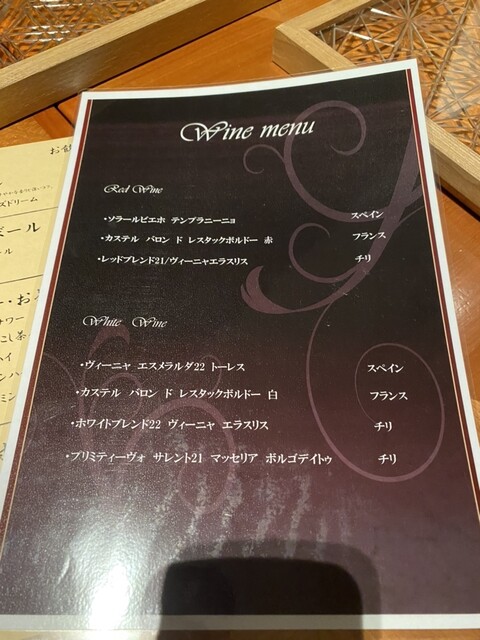 Wine menu
Red Wine
・ソラールビエホ テンプラニーニョ スペイン
・カステル バロン ド レスタックボルドー 赤 フランス
・レッドブレンド21/ヴィーニャエラスリス チリ
White Wine
・ヴィーニャ エスメラルダ22 トーレス スペイン
・カステル バロン ド レスタックボルドー 白 フランス
・ホワイトブレンド22 ヴィーニャ エラスリス チリ
・プリミティーヴォ サレント21 マッセリア ボルゴデイトゥ チリ
ズドリーム
ール
サワー
こし茶
ハイ
ンハ
ミン